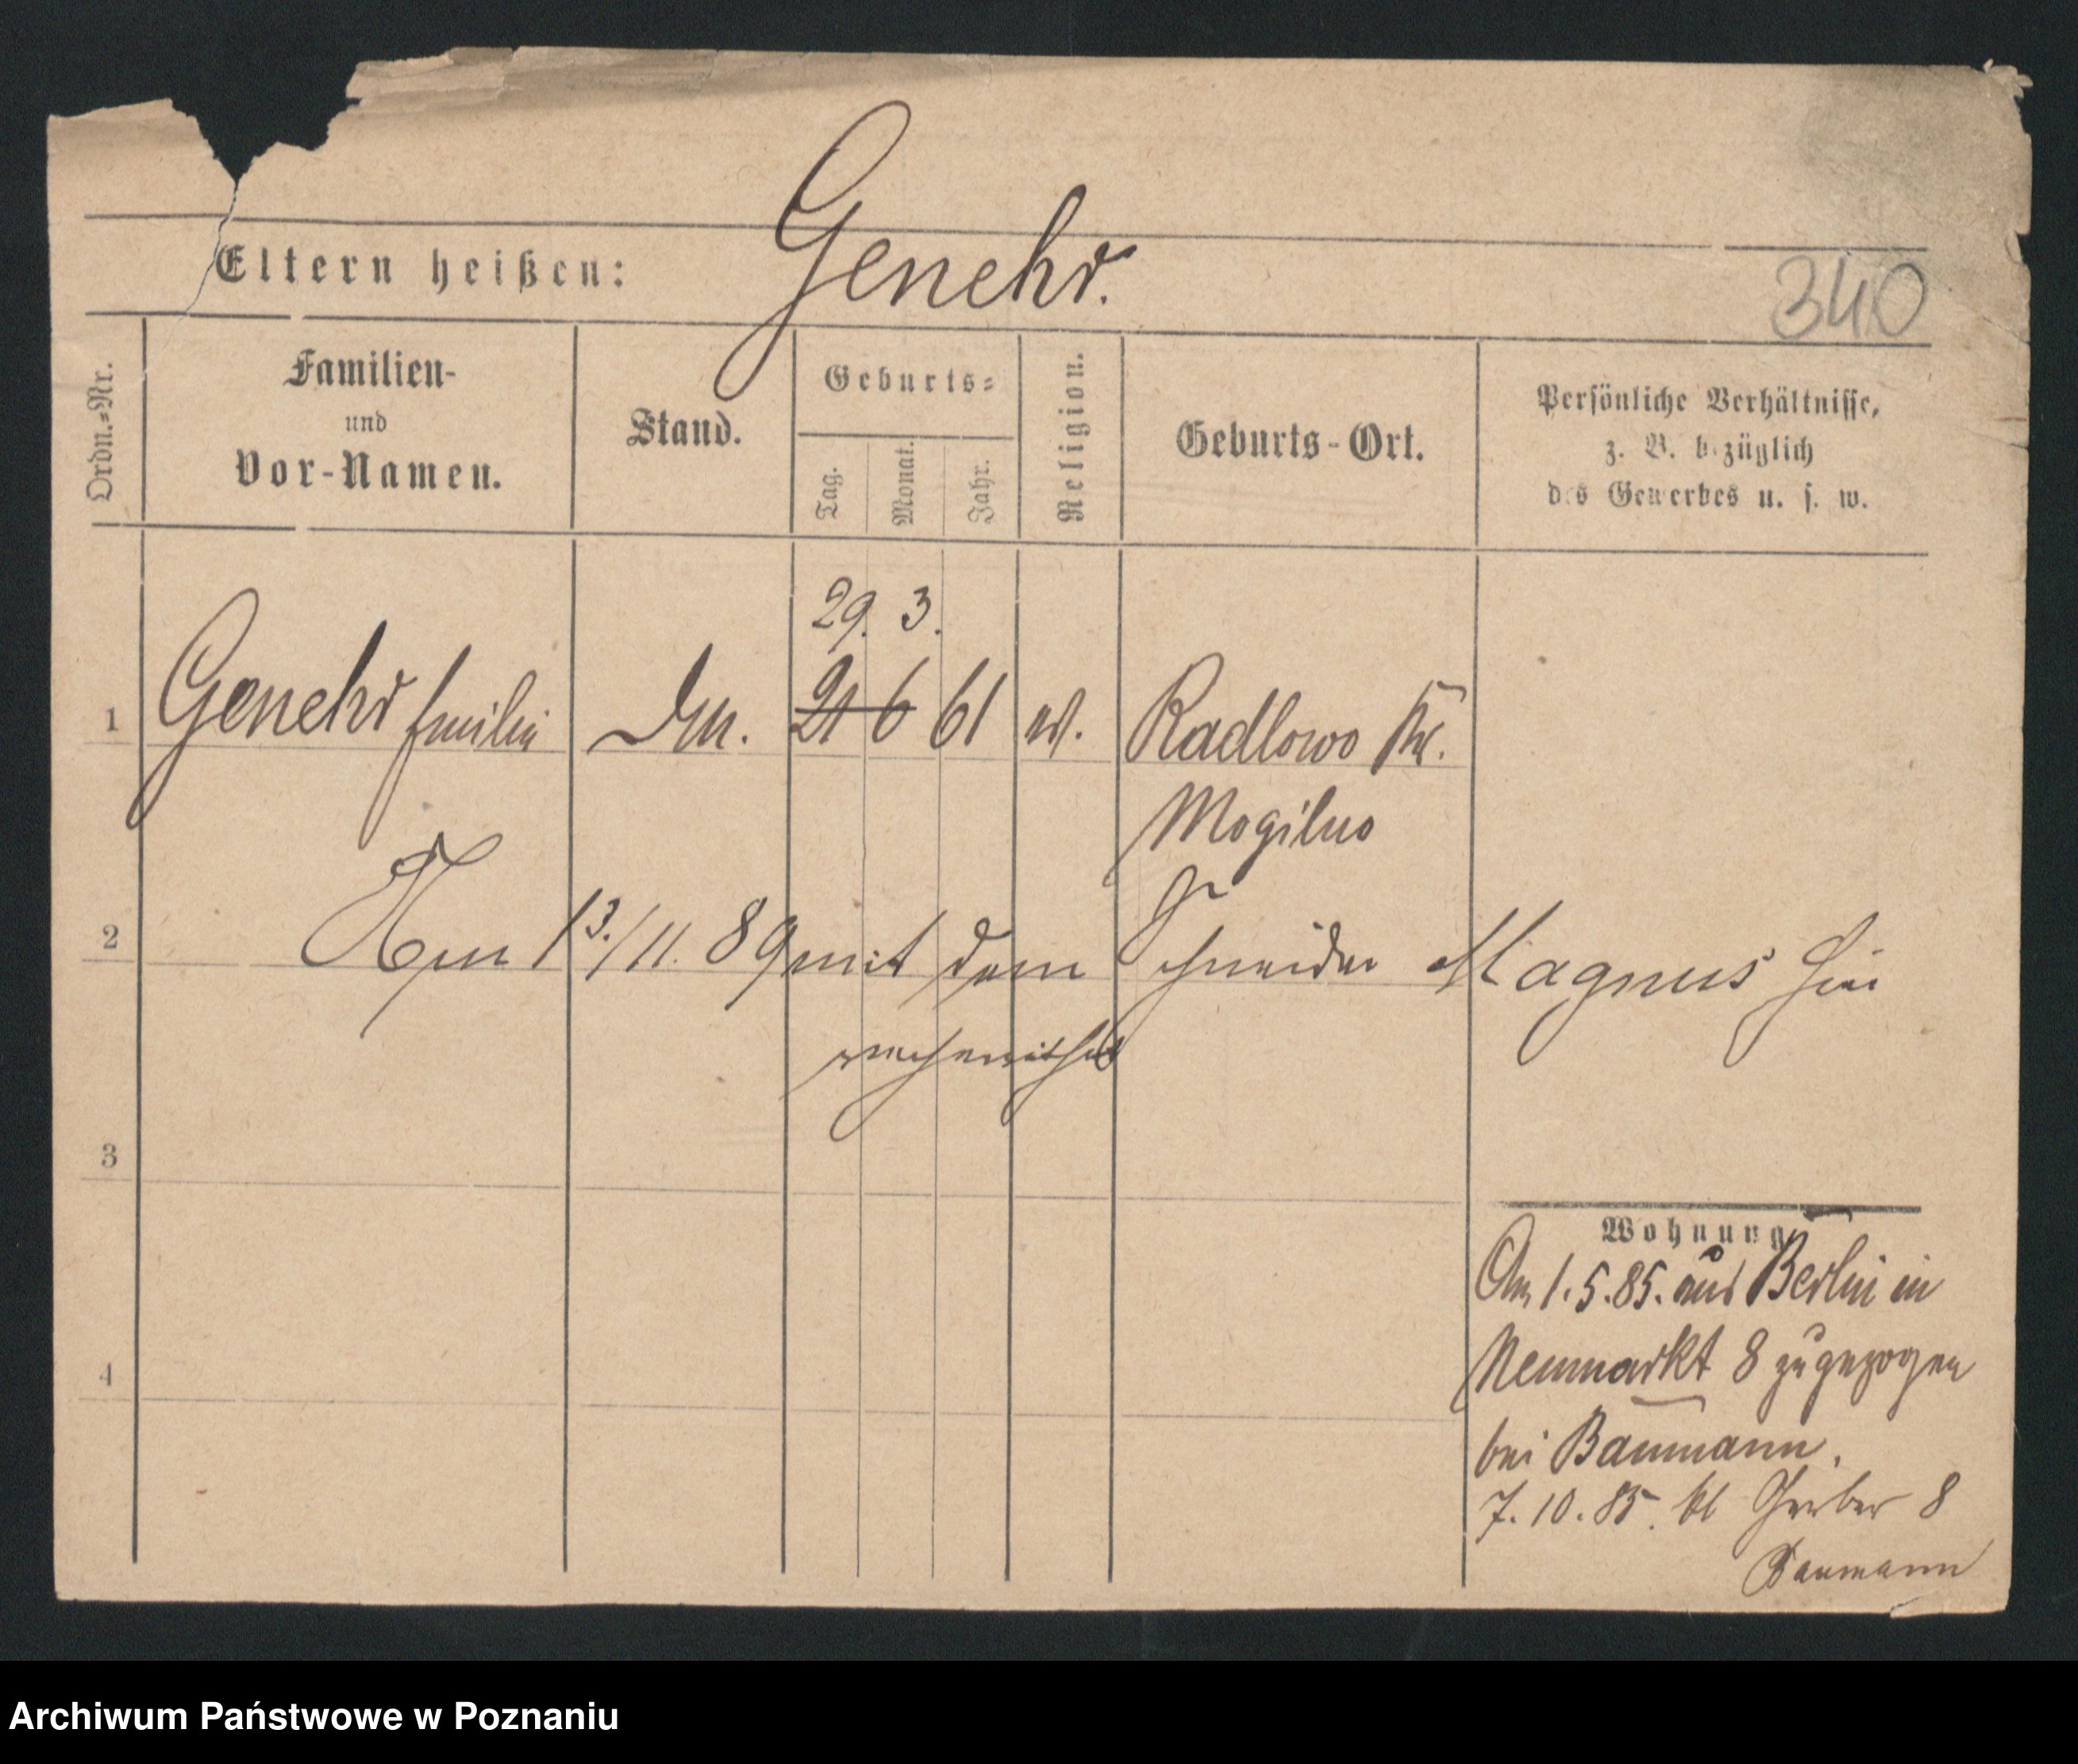 Genehr.
Eltern heißen:
340
Ordn.=Nr.
Familien-
und
Vor-Namen.
Stand.
Geburts=
Tag.
Monat.
Jahr.
Religion.
Geburts-Ort.
Persönliche Verhältnisse,
z. B. bezüglich
des Gewerbes u. s. w.
29. 3.
1 Genehr Emilie 21 6 61 Radlowo Kr.
Mogilno
2 Am 13./11. 89 mit dem Schneider Magnus hier
verheirathet
3
Wohnung
Am 1.5.85. aus Berlin in
4
Neumarkt 8 zugezogen
bei Baumann.
7.10.85. kl Gerber 8
Baumann
Archiwum Państwowe w Poznaniu